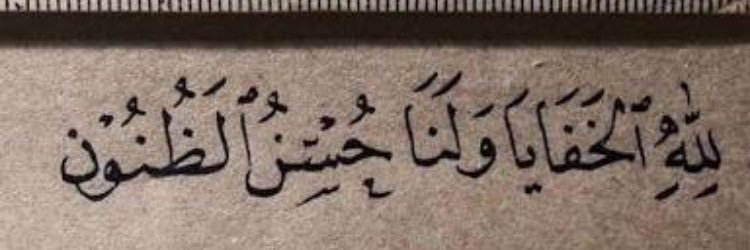 لِلّٰهِ ٱلخَفَايَا وَلَنَا حُسْنُ ٱلظُنُوْن